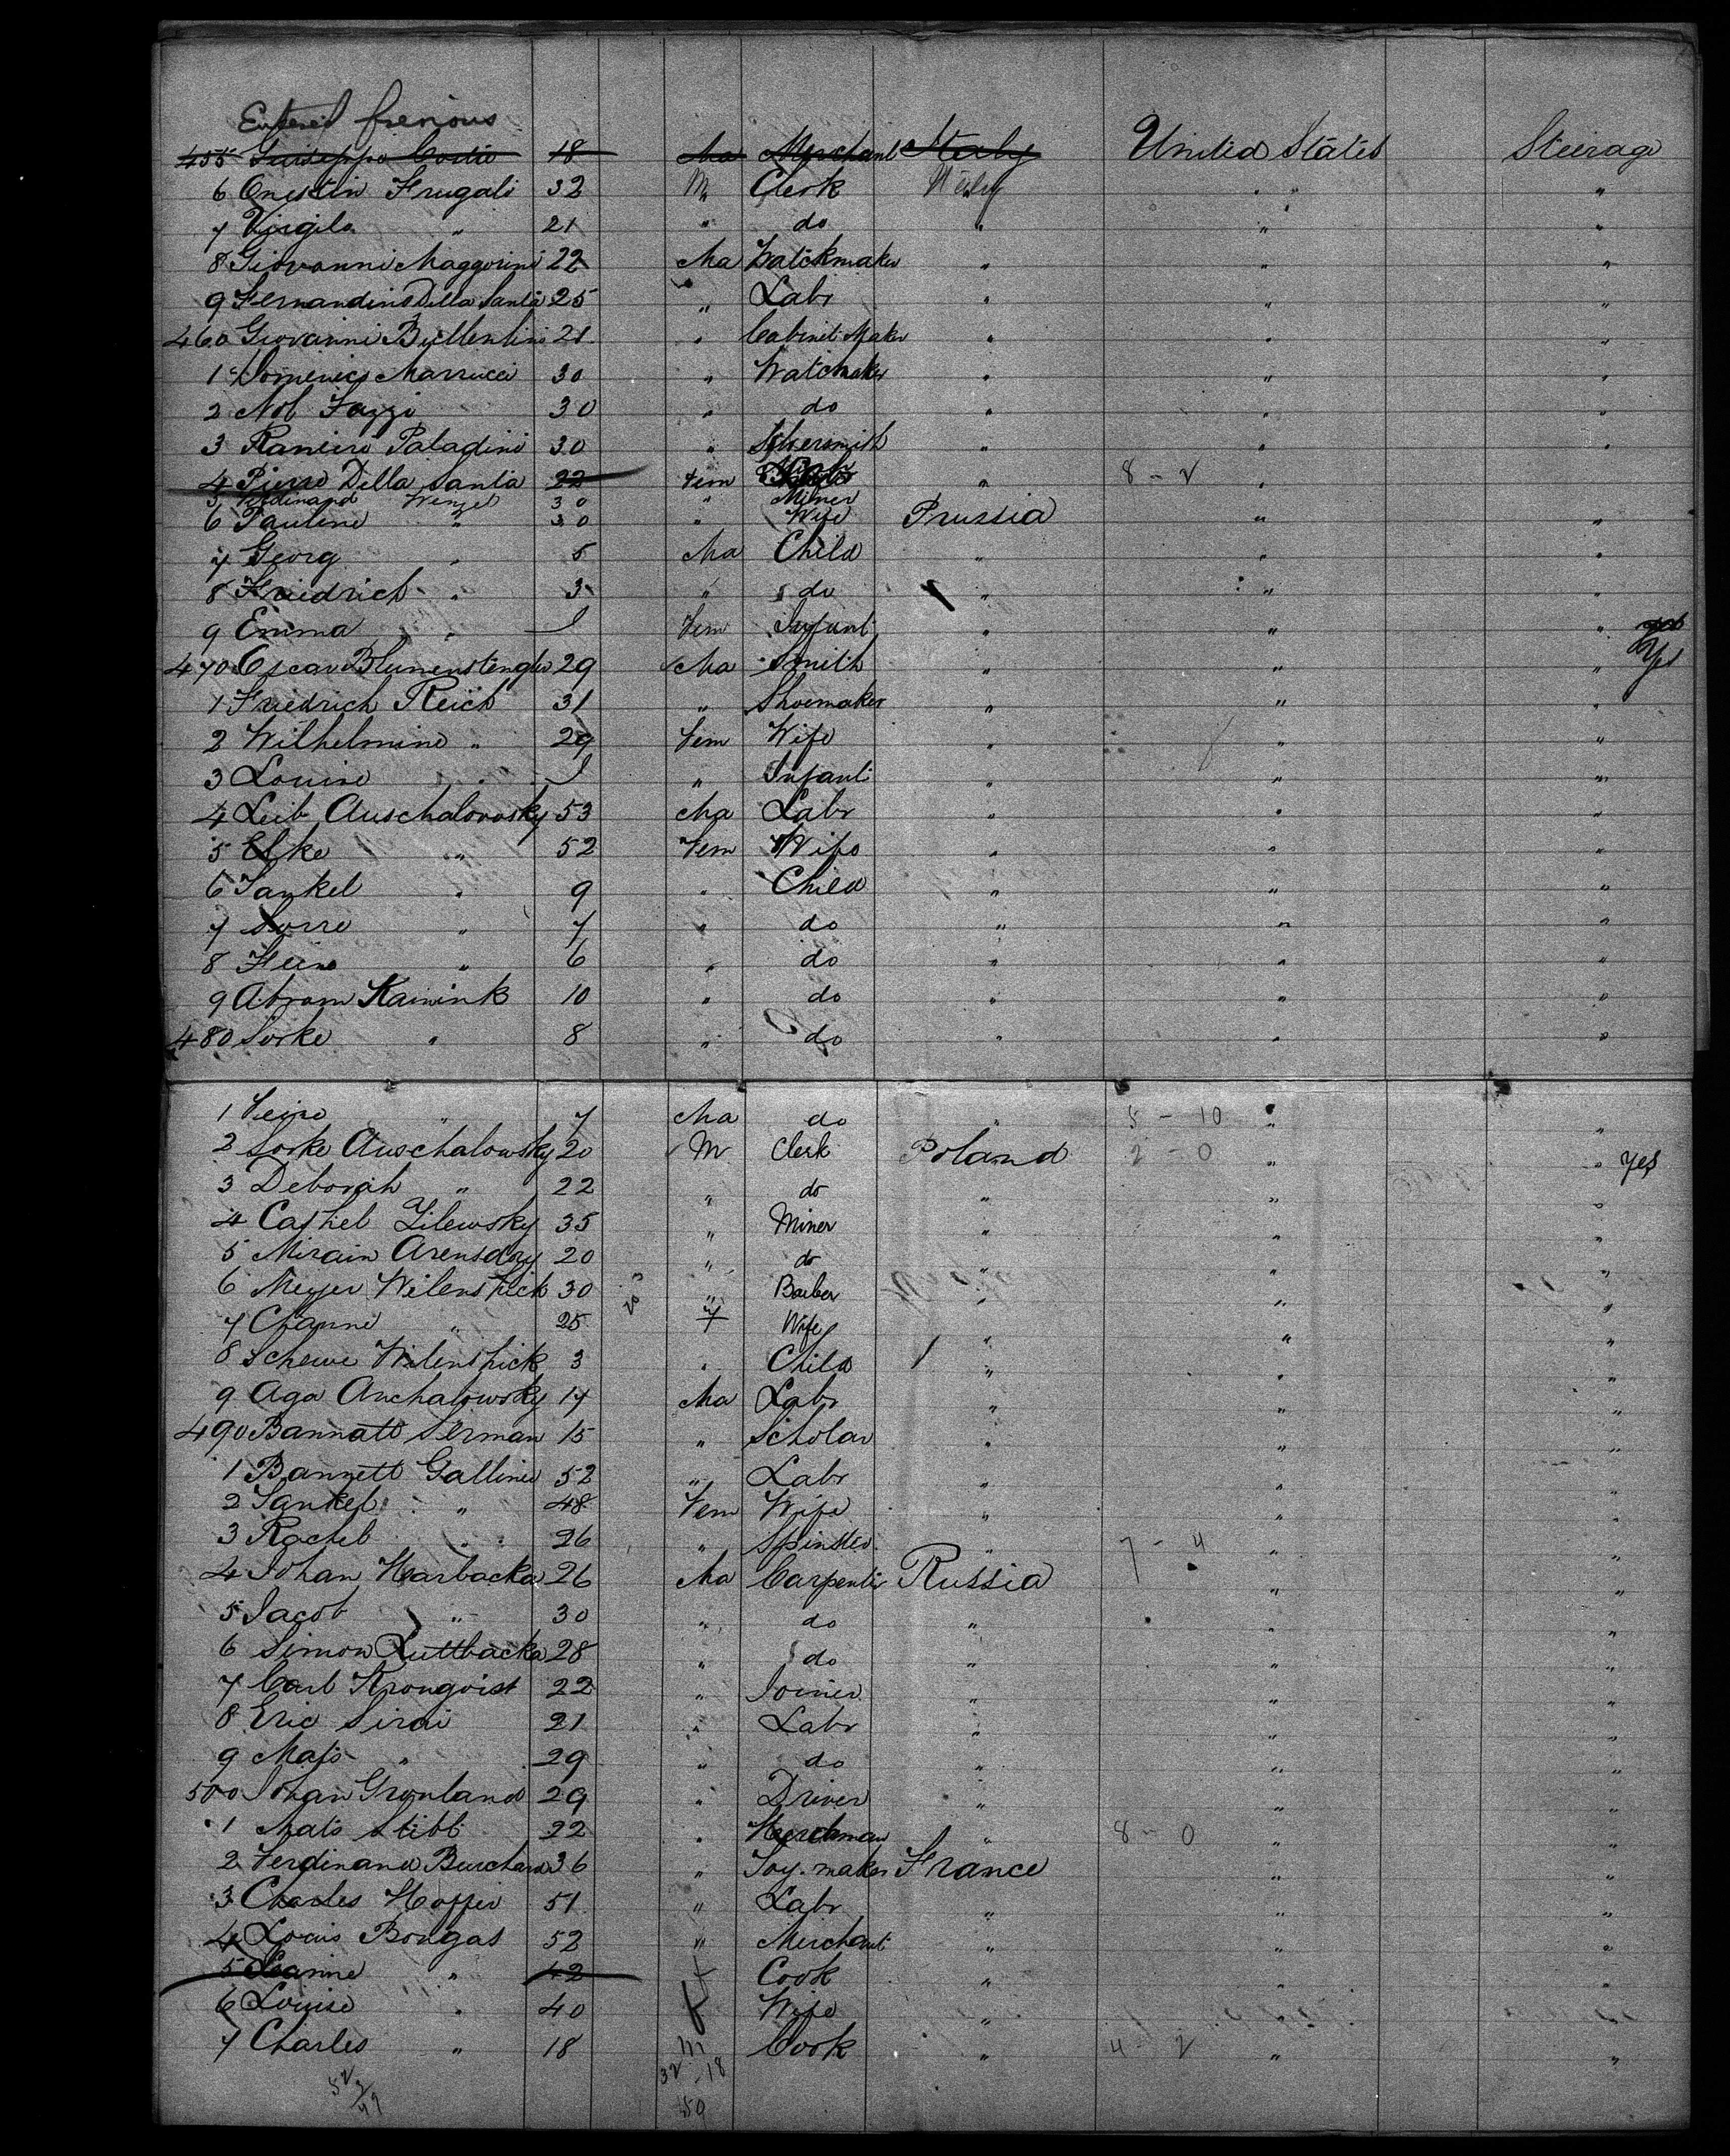 Entered previous
455 Guiseppe Costa 18 Ma Merchant Italy United States Steerage
6 Onestin Frugali 32 M Clerk Italy " "
7 Virgilo " 21 " do " " "
8 Giovanni Maggorini 22 Ma Watchmaker " " "
9 Fernandino Della Santa 25 " Labr " " "
460 Giovanni 21 " Cabinet Maker " " "
1 Domenico Marrucca 30 " Watchmaker " " "
2 Nob Fazzi 30 " do " " "
3 Raniero Paladini 30 " Silversmith " " "
4 Pierro Della Santa 22 Fem " 8 - 2 " "
5 Ferdinand Wenzel 30 " Miner
6 Pauline " 30 " Wife Prussia " "
7 Georg " 5 Ma Child " " "
8 Friedrich " 3 " do " " "
9 Emma " 1 Fem Infant " " "
470 Oscar Blumenstengler 29 Ma Smith " " " Yes
1 Friedrich Reich 31 " Shoemaker " " "
2 Wilhelmine " 29 Fem Wife " " "
3 Louise " 1 " Infant " " "
4 Leib Auschalowsky 53 Ma Labr " " "
5 Elke " 52 Fem Wife " " "
6 Jankel " 9 " Child " " "
7 Sorre " 7 " do " " "
8 " 6 " do " " "
9 Abram Kainink 10 " do " " "
480 Sorke " 8 " do " " "
1 " 7 Ma do " 8 - 10 " "
2 Sorke Auschalowsky 20 M Clerk Poland 2 - 0 " " Yes
3 Deborah " 22 " do " " "
4 Cashel Zilewsky 35 " Miner " " "
5 Mirain 20 " do " " "
6 Meyer Wilenshick 30 " Barber " " "
7 Channe " 25 F Wife " " "
8 Schewe Wilenshick 3 " Child " " "
9 Aga Anchalowsky 17 Ma Labr " " "
490 Bannatt Serman 15 " Scholar " " "
1 Bannett Galline 52 " Labr " " "
2 Jankel " 48 Fem Wife " " "
3 Rachel " 26 " Spinster " 7 - 4 " "
4 Johan Harbacka 26 Ma Carpenter Russia " "
5 Jacob " 30 " do " " "
6 Simon Luttbacka 28 " do " " "
7 Carl Kronqvist 22 " Joiner " " "
8 Eric Sirai 21 " Labr " " "
9 Mats " 29 " do " " "
500 Johan Gronland 29 " Driver " " "
1 Mats Stibb 22 " Herdsman " 8 - 0 " "
2 Ferdinand Burchard 36 " Toy-maker France " "
3 Charles Hoffer 51 " Labr " " "
4 Louis Bongas 52 " Merchant " " "
5 Jeanne " 42 Cook " " "
6 Louise " 40 Wife " " "
7 Charles " 18 M Cook " 4 - 2 " "
32 - 18
50